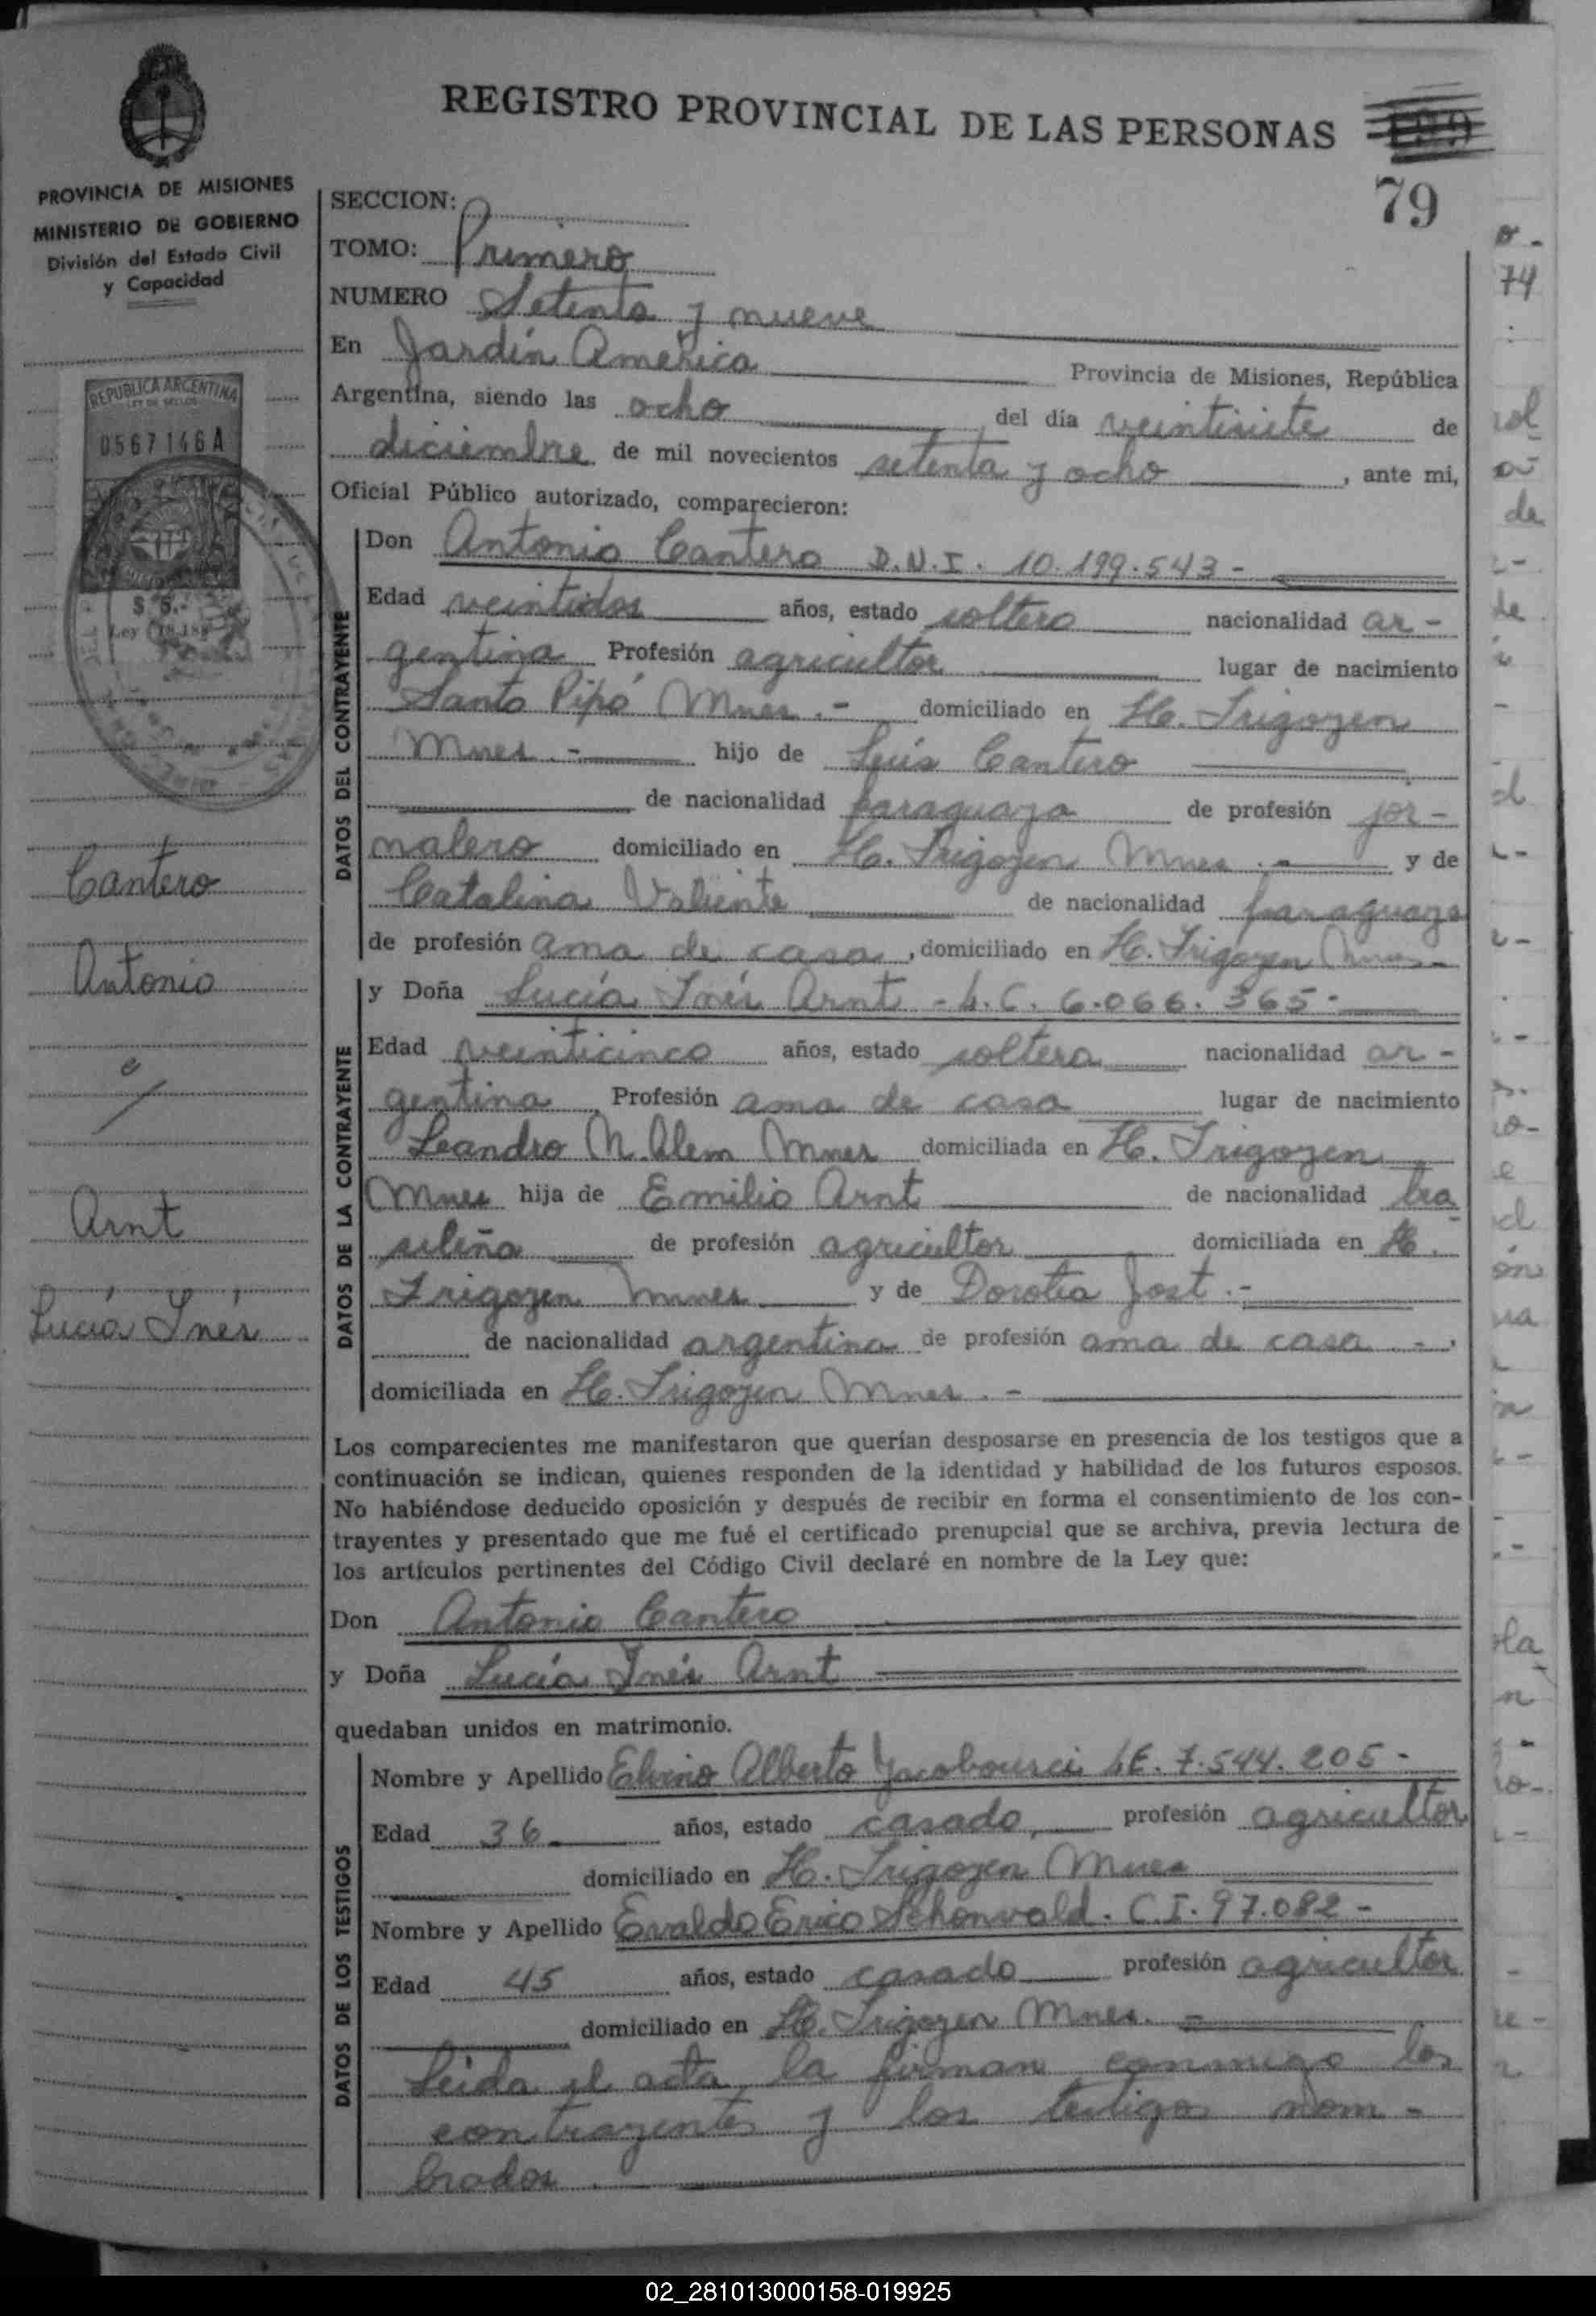 REGISTRO PROVINCIAL DE LAS PERSONAS
79
PROVINCIA DE MISIONES
MINISTERIO DE GOBIERNO
División del Estado Civil
y Capacidad
REPUBLICA ARGENTINA
LEY DE SELLOS
0567146A
$ 5.-
Ley
Cantero
Antonio
e/
Arnt
Lucía Inés
SECCION:
TOMO: Primero
NUMERO Setenta y nueve
En Jardín América Provincia de Misiones, República
Argentina, siendo las ocho del día veintisiete de
diciembre de mil novecientos setenta y ocho, ante mi,
Oficial Público autorizado, comparecieron:
DATOS DEL CONTRAYENTE
Don Antonio Cantero D.N.I. 10.199.543 -
Edad veintidos años, estado soltero nacionalidad ar-
gentina Profesión agricultor lugar de nacimiento
Santo Pipó Mnes.- domiciliado en H. Irigoyen
Mnes.- hijo de Luis Cantero
de nacionalidad paraguaya de profesión jor-
nalero domiciliado en H. Irigoyen Mnes.- y de
Catalina Valiente de nacionalidad paraguaya
de profesión ama de casa, domiciliado en H. Irigoyen Mnes-
DATOS DE LA CONTRAYENTE
y Doña Lucía Inés Arnt - L.C. 6.066.365-
Edad veinticinco años, estado soltera nacionalidad ar-
gentina Profesión ama de casa lugar de nacimiento
Leandro N. Alem Mnes domiciliada en H. Irigoyen
Mnes hija de Emilio Arnt de nacionalidad bra
sileña de profesión agricultor domiciliada en H.
Irigoyen Mnes y de Dorotea Jost.-
de nacionalidad argentina de profesión ama de casa -.
domiciliada en H. Irigoyen Mnes.-
Los comparecientes me manifestaron que querían desposarse en presencia de los testigos que a
continuación se indican, quienes responden de la identidad y habilidad de los futuros esposos.
No habiéndose deducido oposición y después de recibir en forma el consentimiento de los con-
trayentes y presentado que me fué el certificado prenupcial que se archiva, previa lectura de
los artículos pertinentes del Código Civil declaré en nombre de la Ley que:
Don Antonio Cantero
y Doña Lucía Inés Arnt
quedaban unidos en matrimonio.
DATOS DE LOS TESTIGOS
Nombre y Apellido Elvino Alberto LE. 7.544.205-
Edad 36 años, estado casado profesión agricultor
domiciliado en H. Irigoyen Mnes
Nombre y Apellido Evaldo Erico Schonvald. C.I. 97.082-
Edad 45 años, estado casado profesión agricultor
domiciliado en H. Irigoyen Mnes.-
Leida el acta, la firman conmigo los
contrayentes y los testigos nom-
brados
74
02_281013000158-019925